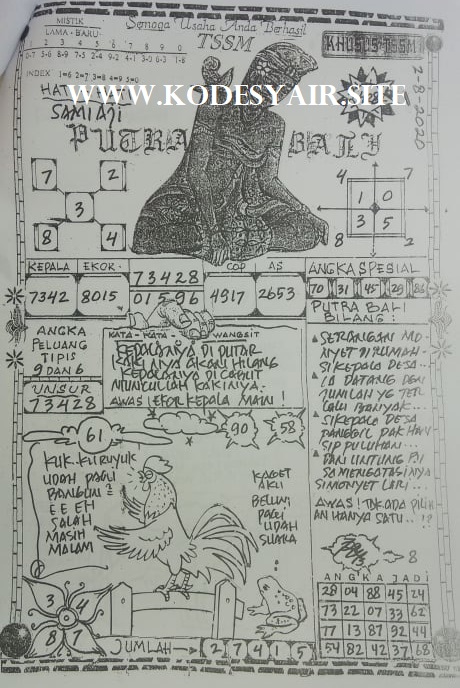 MISTIK
Semoga Usaha Anda Berhasil
LAMA - BARU
TSSM
KHUSUS TSSM
2 3 4 5 6 7 8 9 0
0-7 3-6 8-9 7-5 2-4 9-2 4-1 3-0 6-3 1-8
INDEX 1=6 2=7 3=8 4=9 5=0
2-8-2020
WWW.KODESYAIR.SITE
SAMIAJI
PUTRA BALI
7 2
3
8 4
4 7
1 0
3 5
8 2
KEPALA EKOR
7342 8015
73428
01596
COP AS
4917 2653
ANGKA SPESIAL
70 31 45 29 86
PUTRA BALI
BILANG :
ANGKA
PELUANG
TIPIS
9 DAN 6
UNSUR
73428
KATA - KATA WANGSIT
KEPALANYA DI PUTAR
KAKINYA AKAN HILANG
KEPALANYA DI CABUT
MUNCULLAH KAKINYA.
AWAS ! EFOR KEPALA MAIN !
SERANGAN MO-
NYET DIRUMAH
SI KEPALA DESA..
IA DATANG DEN
JUMLAH YG TER
LALU BANYAK...
SIKEPALA DESA
PANGGIL PAK HAN
SIP PULUHAN...
DAN UNTUNG
SA MENGATASINYA
SIMONYET LARI...
AWAS ! TAK ADA PILIH
AN HANYA SATU.. !?
61
90 58
KUK.. KURUYUK
UDAH PAGI
BANGUN
E E EH
SALAH
MASIH
MALAM
KAGET
AKU
BELUM
PAGI
UDAH
SUARA
8
ANGKA JADI
28 04 88 45 24
73 22 07 33 62
77 13 87 92 44
54 82 42 37 68
3 4
8 7
JUMLAH → 2 7 4 1 5